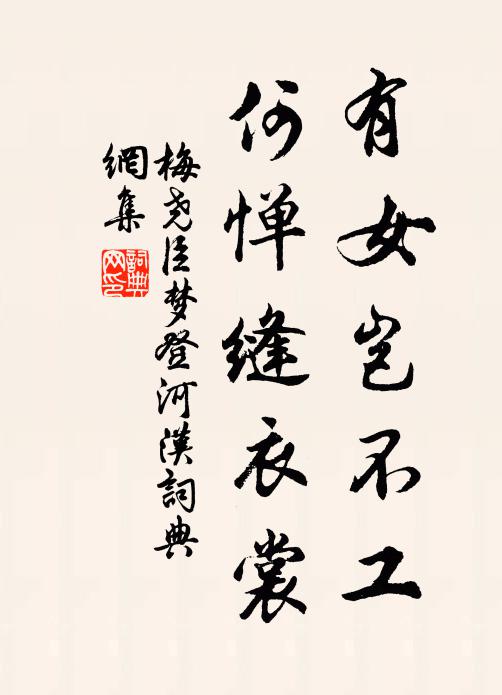 有女岂不工
何惮缝衣裳
梅尧臣梦登河漢詞典
網集
詞典
网印